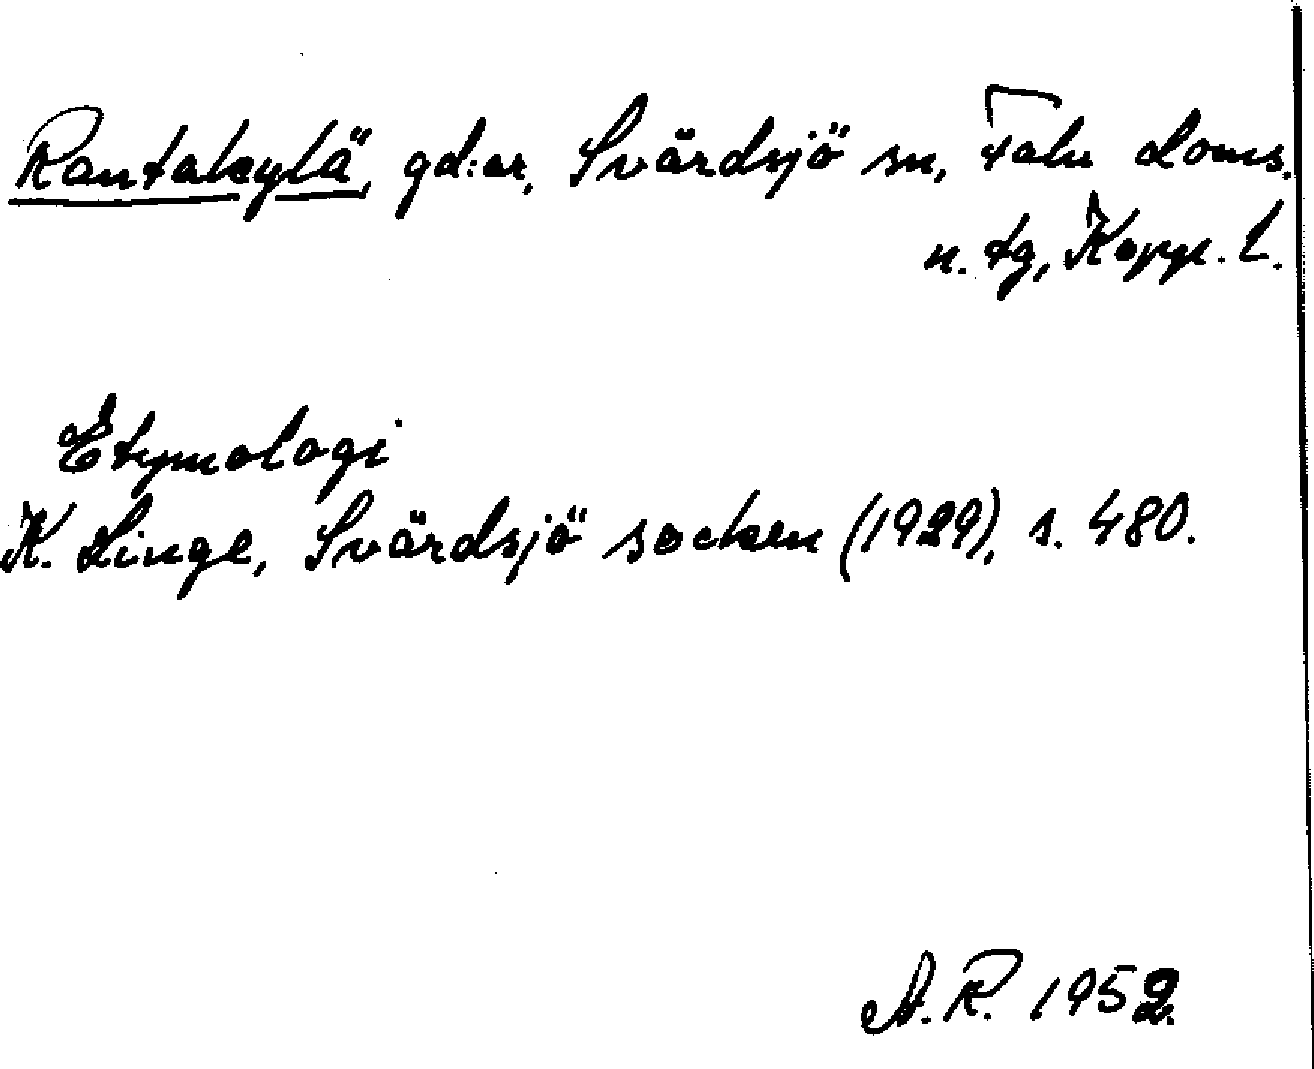 Rantakylä, gd:ar, Svärdsjö sn, Falu doms.
n. tg, Kopp. l.
Etymologi
K. Linge, Svärdsjö socken (1929), s. 480.
A.R. 1952.